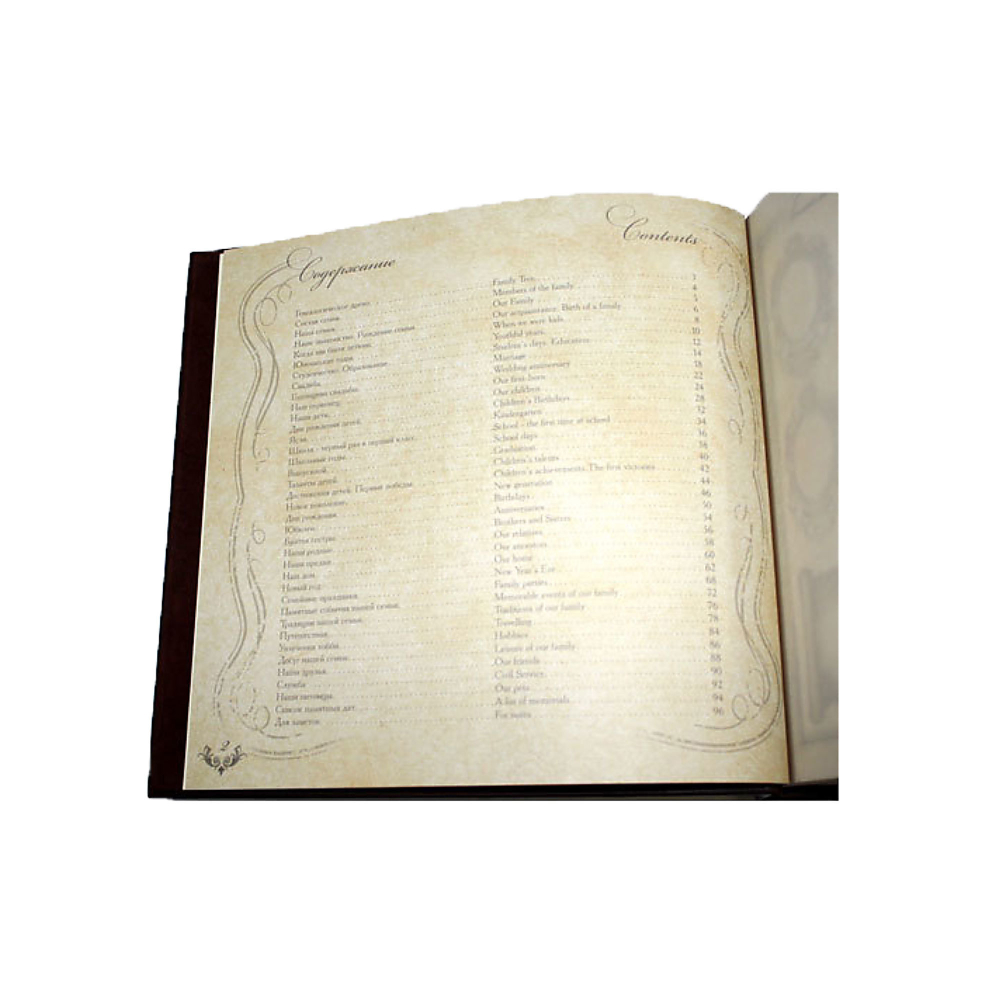 Содержание
Contents
Генеалогическое древо. Family Tree. 3
Состав семьи. Members of the family. 4
Наша семья. Our Family 5
Наше знакомство. Рождение семьи. Our acquaintance. Birth of a family. 6
Когда мы были детьми. When we were kids. 8
Юношеские годы. Youthful years. 10
Студенчество. Образование. Student's days. Education. 12
Свадьба. Marriage 14
Годовщина свадьбы. Wedding anniversary 18
Наш первенец. Our first-born 22
Наши дети. Our children 24
Дни рождения детей. Children's Birthdays 28
Ясли. Kindergarten 32
Школа - первый раз в первый класс. School - the first time at school 34
Школьные годы. School days 36
Выпускной. Graduation 38
Таланты детей. Children's talents 40
Достижения детей. Первые победы. Children's achievements. The first victories 42
Новое поколение. New generation 44
Дни рождения. Birthdays 46
Юбилеи. Anniversaries 50
Братья сестры. Brothers and Sisters 54
Наши родные. Our relatives 56
Наши предки. Our ancestors 58
Наш дом. Our home 60
Новый год. New Year's Eve 62
Семейные праздники. Family parties 68
Памятные события нашей семьи. Memorable events of our family 72
Традиции нашей семьи. Traditions of our family 76
Путешествия. Travelling 78
Увлечения хобби. Hobbies 84
Досуг нашей семьи. Leisure of our family 86
Наши друзья. Our friends 88
Служба Civil Service 90
Наши питомцы. Our pets 92
Список памятных дат. A list of memorials 94
Для заметок. For notes 96
2